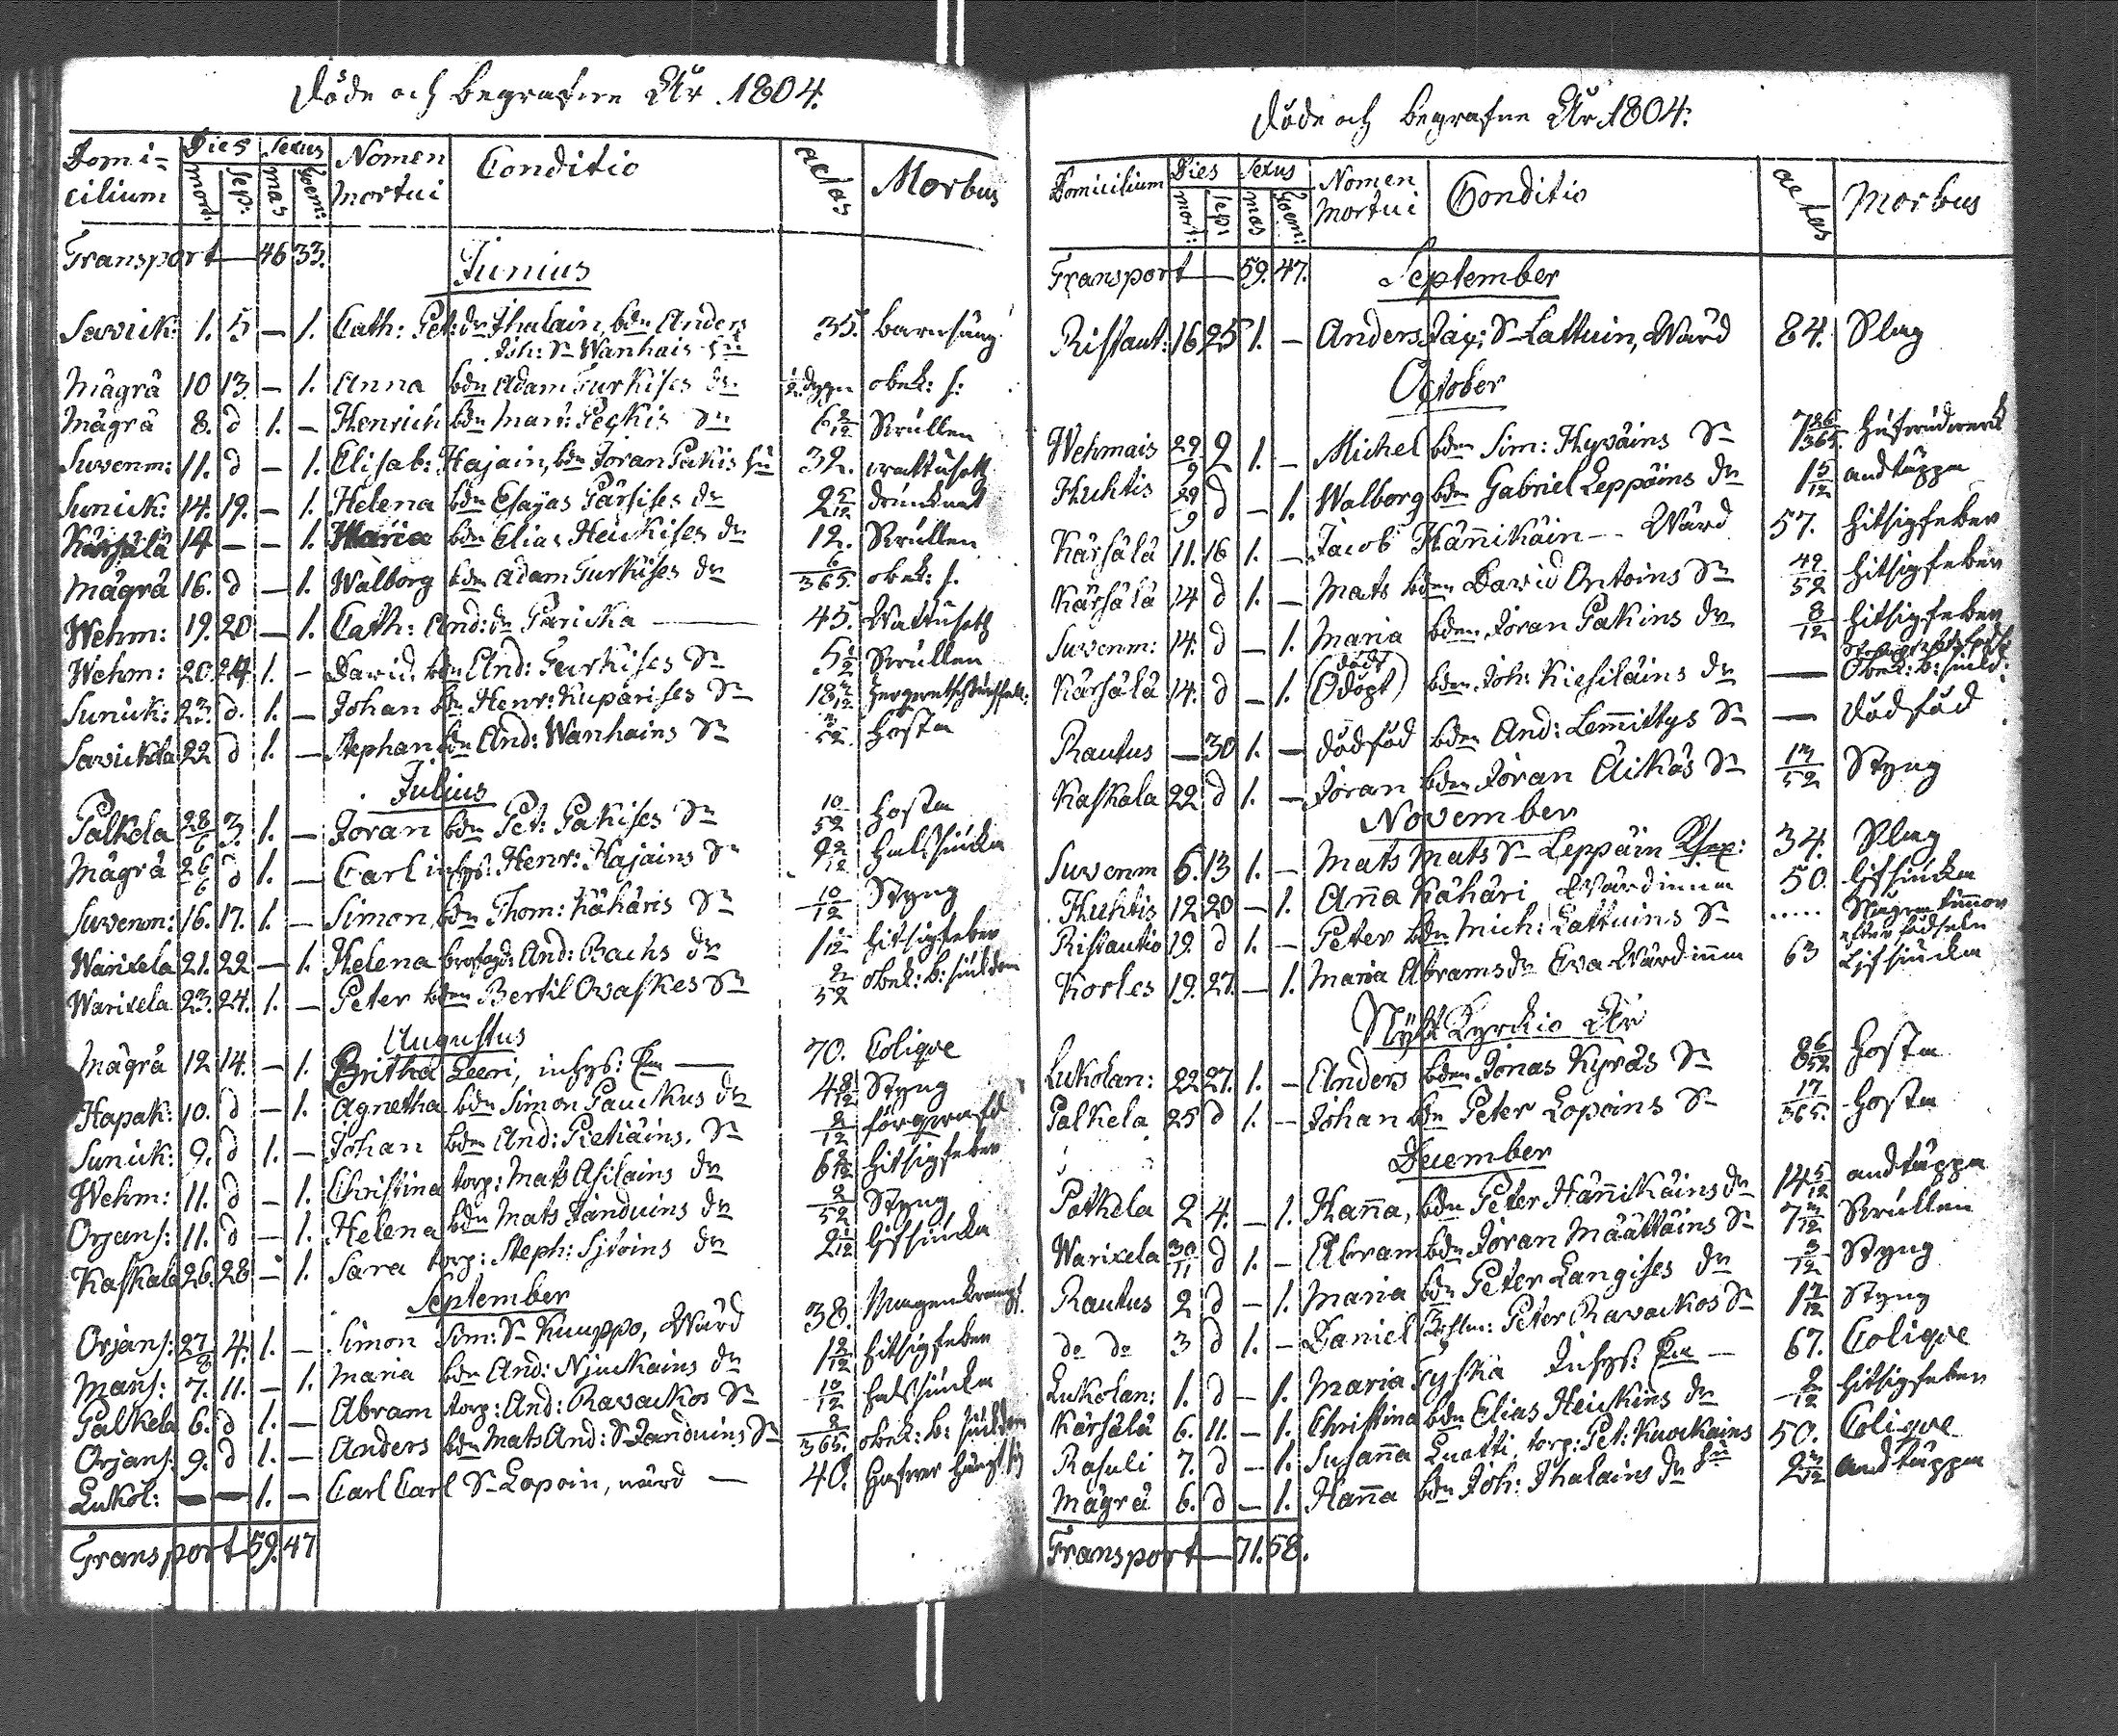 Döde och Begrafne År 1804.
Domi-cilium Dies mort: sep: Sexus mas foem: Nomen mortui Conditio aetas Morbus
Transport — 46 33.
Junius
Savick: 1. 5 — 1. Cath: Pet: dr Ihalain, bdn Anders 35. barnsäng
Joh: Sn Wanhais hu
Mägrä 10 13. — 1. Anna bdn Adam Turkises dr ½ dygn obek: s:
Mägrä 8. d 1. — Henrich bdn Mart: Peckis Sn 6 2/12 Skrullen
Suvenm: 11. d — 1. Elisab: Hajain, bdn Jöran Pakis hu 32. wattusot
Sunick: 14. 19. — 1. Helena bdn Esajas Pärsises dr 2 2/12 drunknat
Kärsälä 14 — — 1. Maria bdn Elias Heickises dr 12. Skrullen
Mägrä 16. d — 1. Walborg bdn Adam Turkises dr 6/365. obek: s.
Wehm: 19. 20 — 1. Cath: And: dr Paricka — 45. Wattusot
Wehm: 20. 24. 1. — David bdn And: Turkises Sn Skrullen
Sunick: 23. d. 1. — Johan bdn Henr: Kupärises Sn
Savickala 22 d 1. — Stephan bdn And: Wanhains Sn Hosta
Julius
Palkela 28/6 3. 1. — Jöran bdn Pet: Pakises Sn 10/52 Hosta
Mägrä 26/6 d 1. — Carl inhys: Henr: Hajains Sn Halssiucka
Suvenm: 16. 17. 1. — Simon, bdn Thom: Kähäris Sn 10/12 Styng
Warixela 21. 22 — 1. Helena And: Bachs dr hitsigfeber
Warixela 23. 24. 1. — Peter bdn Bertil Ovaskes Sn 2/52 obek: b: siukdom
Augustus
Mägrä 12 14. — 1. Britha Leeri, inhys: — 70. Colique
Hapak: 10. d — 1. Agnetha bdn Simon Pauckus dr 4 8/12 Styng
Sunick: 9. d 1. — Johan bdn And: Pietiäins. Sn 2/12
Wehm: 11. d — 1. Christina torp: Mats Asilains dr hitsigfeber
Orjans: 11. d — 1. Helena bdn Mats Janduins dr 2/52 Styng
Kaskala 26. 28 — 1. Sara torp: Steph: Sjivoins dr Lifsiucka
September
Orjans: 27/8 4. 1. — Simon Sim: Sn Kuuppo, Wärd 38. Magenkramp
Mans: 7. 11. — 1. Maria bdn And: Njuckains dr hitsigfeber
Palkela 6. d 1. — Abram torp: And: Ravackos Sn 10/12 halssiucka
Orjans: 9. d 1. — Anders bdn Mats And: Sn Janduins Sn 8/365. obek: b: siukdom
Lukol: — — 1. — Carl Carl Sn Lopoin, wärd — 40.
Transport 59. 47
Döde och Begrafne År 1804:
Domicilium Dies mort: sep: Sexus mas foem: Nomen Mortui Conditio aetas Morbus
Transport — 59. 47.
September
Ristaut: 16 25 1. — Anders Sn Lattuin, Wärd 84. Slag
October
Wehmais 29/9 2 1. — Michel bdn Sim: Hyväins Sn 7 26/365. hufvudwerk
Huhtis 29/9 d — 1. Walborg bdn Gabriel Leppäins dr 1 5/12 andtäppa
Kärsälä 11. 16 1. — Jacob Hännikäin -- Wärd 57. hitsigfeber
Kärsälä 14 d 1. — Mats bdn David Ortoins Sn 42/52 hitsigfeber
Suvenm: 14. d — 1. Maria bdn Jöran Pakins dr 8/12 hitsigfeber
Kärsälä 14. d — 1. (Odöpt) bdn Joh: Kiesiläins dr — Obek: b: siukd:
Rautus — 30 1. — dödföd bdn And: Lemmittys Sn — dödföd
Kaskala 22 d 1. — Jöran bdn Jöran Äikäs Sn Styng
November
Suvenm 6. 13 1. — Mats Mats Sn Leppäin 34. Slag
Huhtis 12 20 — 1. Anna Kähäri Wärdinna 50. Lifsiucka
Ristautio 19. d 1. — Peter bdn Mich: Lattuins Sn ..... Några timmar
efter födseln
Korles 19. 27. — 1. Maria Abrams dr Eva Wärdinna 63 Lifsiucka
Nytt Kyrckio År
Lukolan: 22 27. 1. — Anders bdn Jonas Kyräs Sn Hosta
Palkela 25 d 1. — Johan bdn Peter Lopoins Sn 17/365. Hosta
December
Palkela 2 4. — 1. Hanna, bdn Peter Hännikäins dr 14 5/12 andtäppa
Warixela 30/11 d 1. — Abram bdn Jöran Määttäins Sn Skrullen
Rautus 2 d — 1. Maria bdn Peter Langises dr 3/12 Styng
do do 3 d 1. — Daniel Peter Ravackos Sn Styng
Lukolan: 1. d — 1. Maria Tyskä Inhys: — 67. Colique
Kärsälä 6. 11. — 1. Christina bdn Elias Heickins dr 2/12 hitsigfeber
Rasuli 7. d — 1. Susanna Luatti, torp: Pet: Kuockains hu 50. Colique
Mägrä 6. d — 1. Hanna bdn Joh: Ihalains dr andtäppa
Transport — 71. 58.